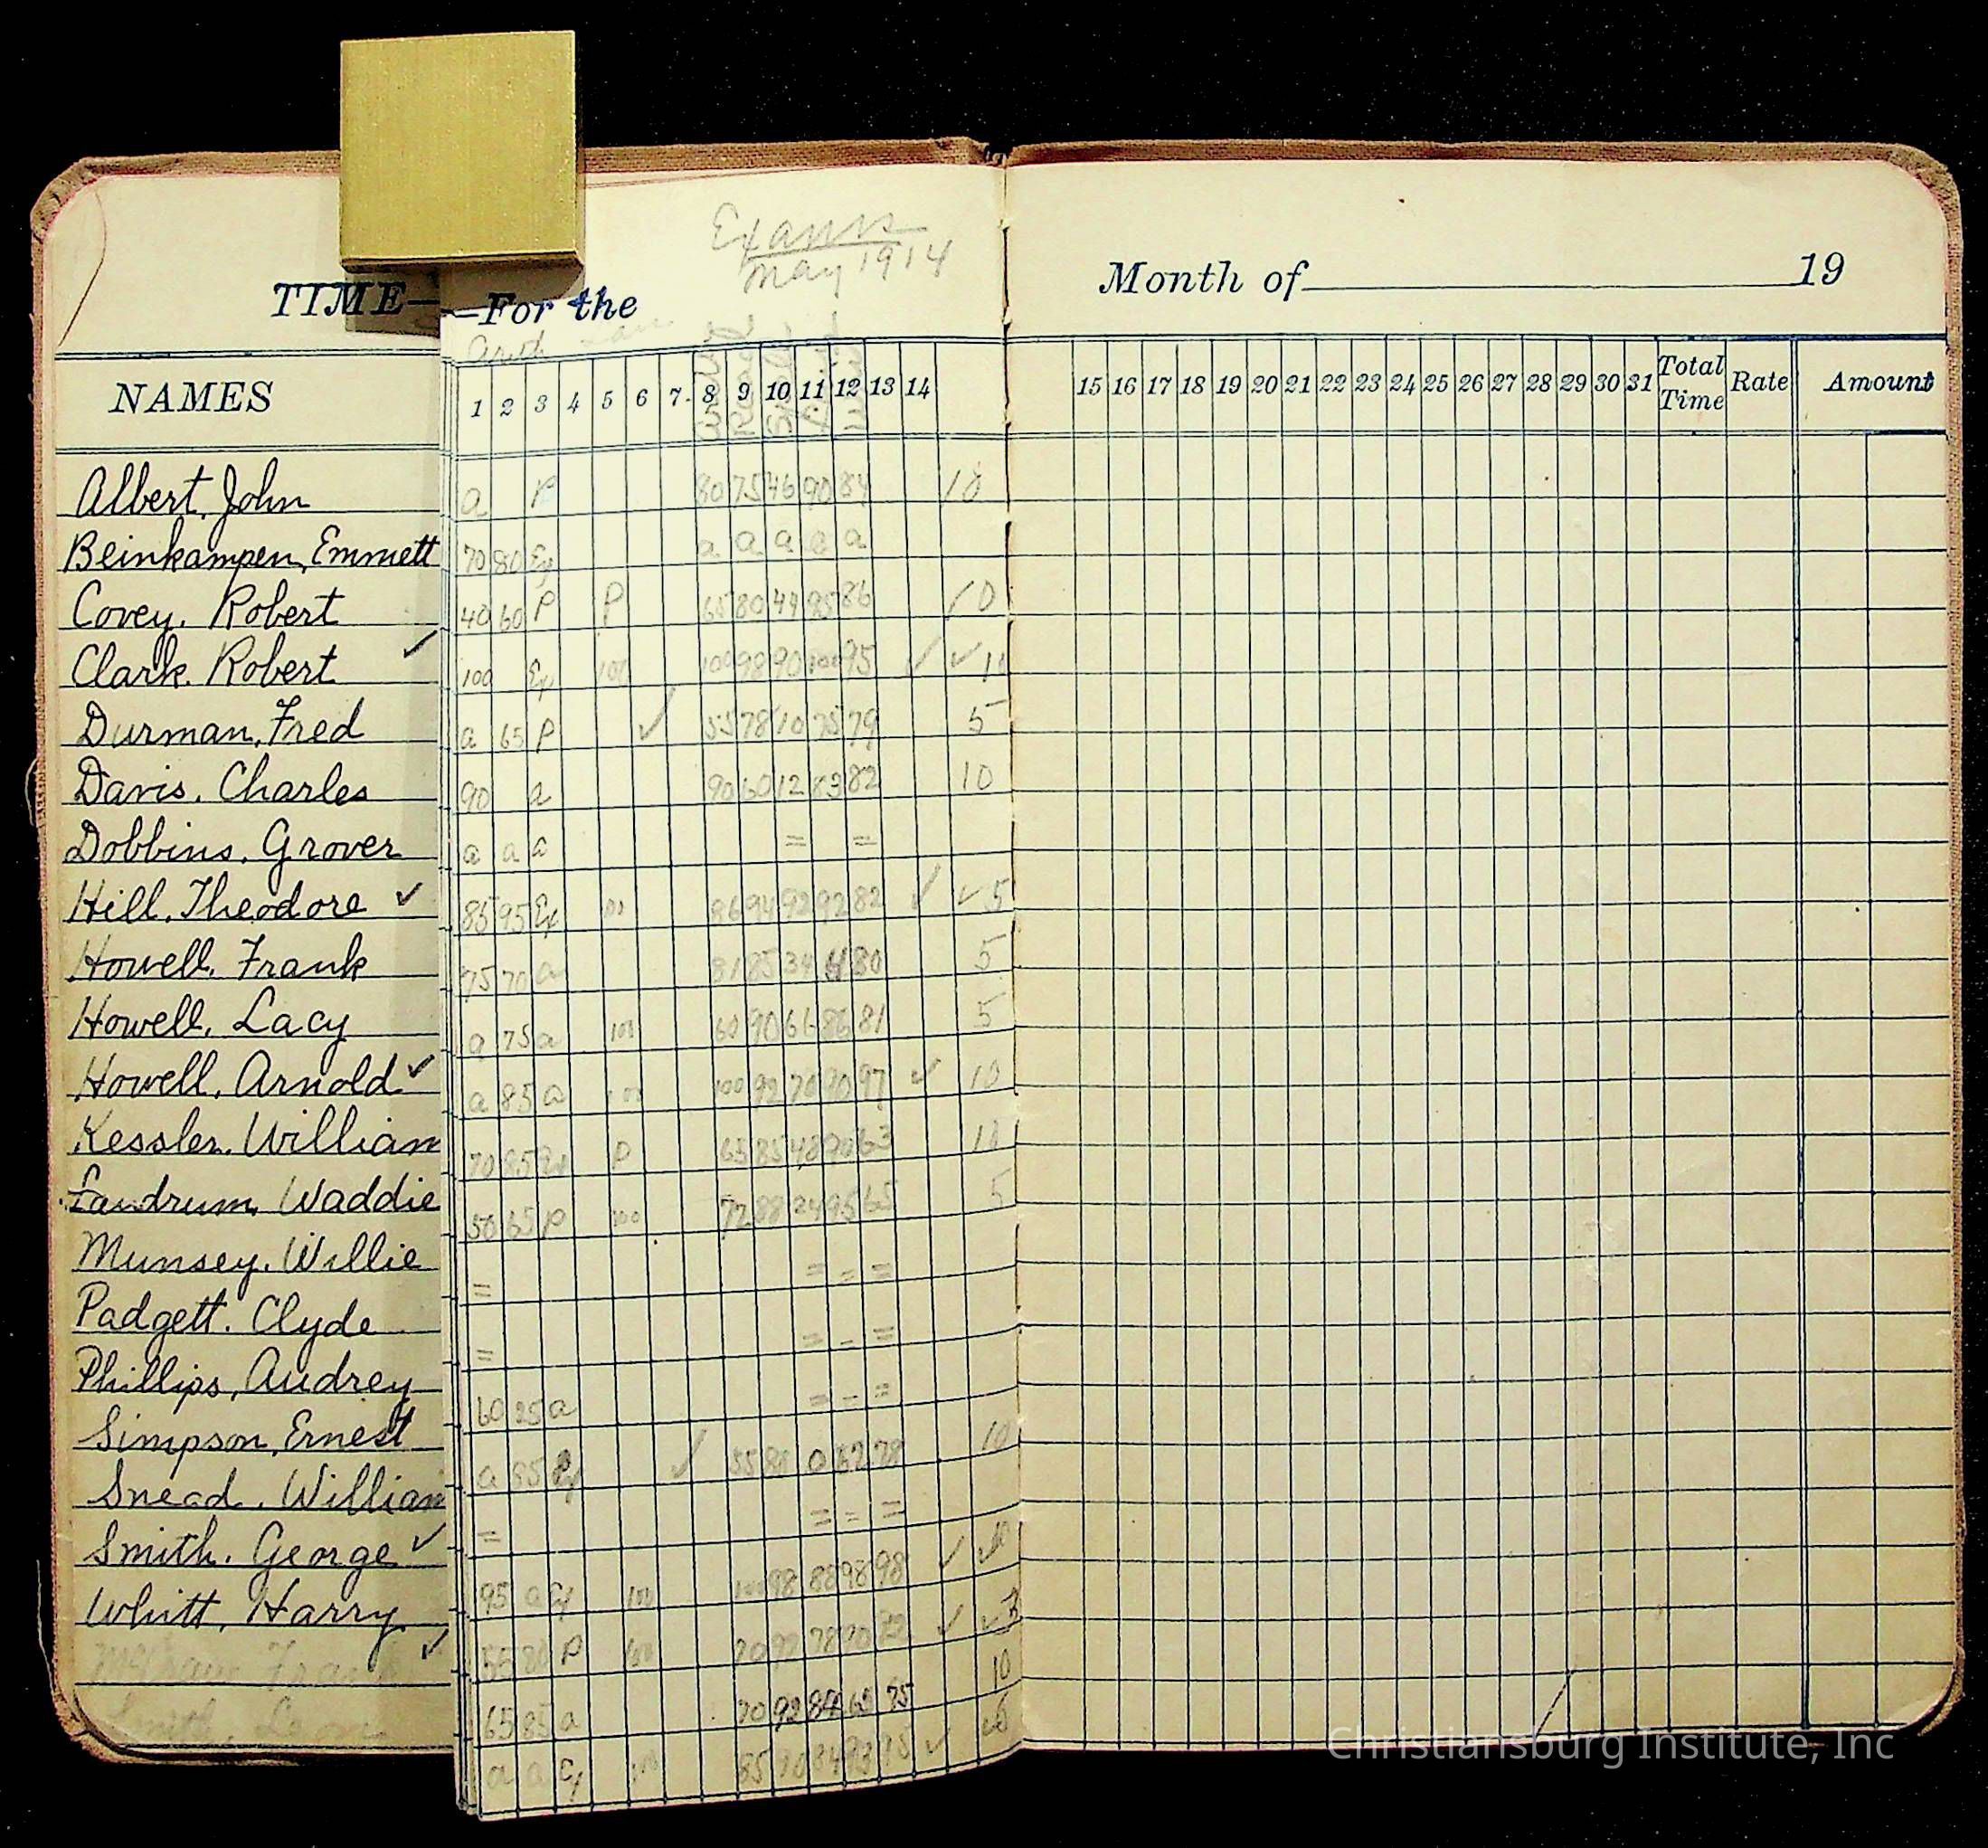 Exams
May 1914
TIME— —For the
Month of 19
Arith
NAMES 1 2 3 4 5 6 7 8 9 10 11 12 13 14 15 16 17 18 19 20 21 22 23 24 25 26 27 28 29 30 31 Total Time Rate Amount
Albert, John a P 80 75 46 90 84 10
Beinkampen, Emmett 70 80 Ex a a a a a
Covey, Robert 40 60 P P 65 80 49 95 86 10
Clark, Robert ✓ 100 Ex 100 100 98 90 100 95 ✓ ✓
Durman, Fred a 65 P ✓ 55 78 10 75 79 5
Davis, Charles 90 a 90 60 12 83 82 10
Dobbins, Grover a a a = =
Hill, Theodore ✓ 85 95 Ex 100 96 94 92 92 82 ✓ ✓ 5
Howell, Frank 75 70 a 81 85 34 80 5
Howell, Lacy a 75 a 100 60 90 66 86 81 5
Howell, Arnold ✓ a 85 a 100 100 92 70 90 97 ✓ 10
Kessler, William 70 85 Ex P 65 85 48 90 63 10
Landrum, Waddie 50 65 P 100 72 88 24 95 65 5
Munsey, Willie = = - =
Padgett, Clyde = = - =
Phillips, Audrey 60 25 a = - =
Simpson, Ernest a 85 Ex ✓ 55 0 52 78 10
Snead, William = = - =
Smith, George ✓ 95 a Ex 100 100 98 88 98 98 ✓ ✓ 10
Whitt, Harry 55 80 P 100 70 97 78 70 ✓ ✓
✓ 65 85 a 70 92 84 65 75 10
Smith, Leon a a Ex 100 85 90 84 93 95 ✓
Christiansburg Institute, Inc